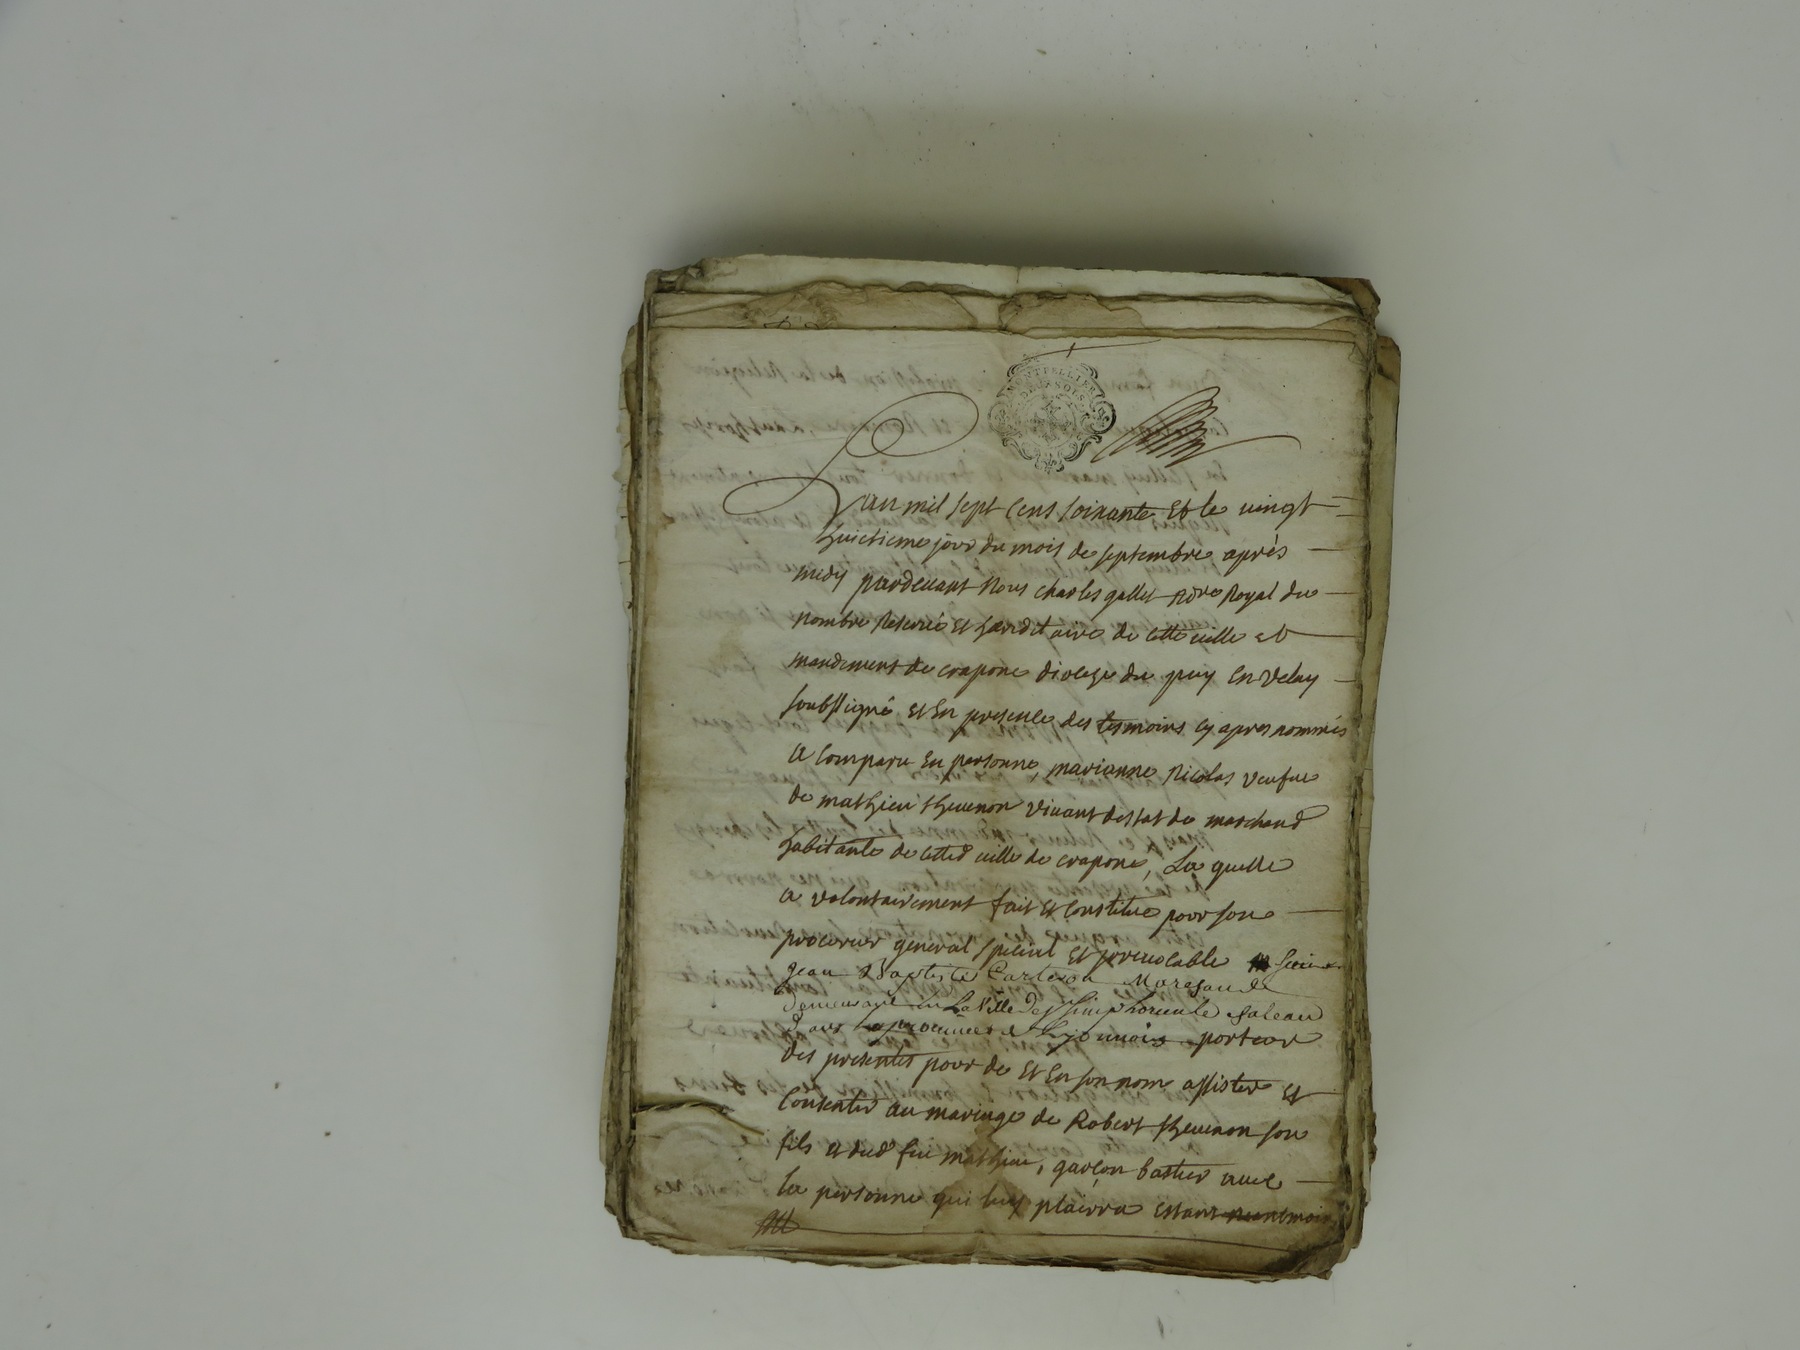 MONTPELLIER
DEUX SOLS
L'an mil sept cens soixante et le vingt
huictieme jour du mois de septembre après
midy pardevant Nous charles gallet nore Royal du
nombre Reservé et hereditaire de cette ville et
mandement de crapone dioceze du puy en velay
soubssigné et en presence des tesmoins cy apres nommés
a comparu en personne, marianne Nicolas veufve
de mathieu thevenon vivant destat de marchand
habitante de cette d ville de crapone, La quelle
a volontairement fait et constitué pour son
procureur general special et irrevocable sieur
jean Baptiste Carteron Marchand
demeurant en La Ville de st simphorien le chateau
dans la province de Lyonnois porteur
des presentes pour de et en son nom assister et
consentir au mariage de Robert thevenon son
fils et dud feu mathieu, garçon bastier avec
la personne qui luy plairra estant neantmoins